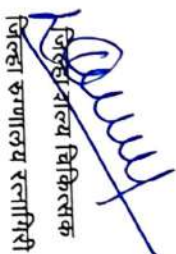 जिल्हा शल्य चिकित्सक
जिल्हा रुग्णालय रत्नागिरी